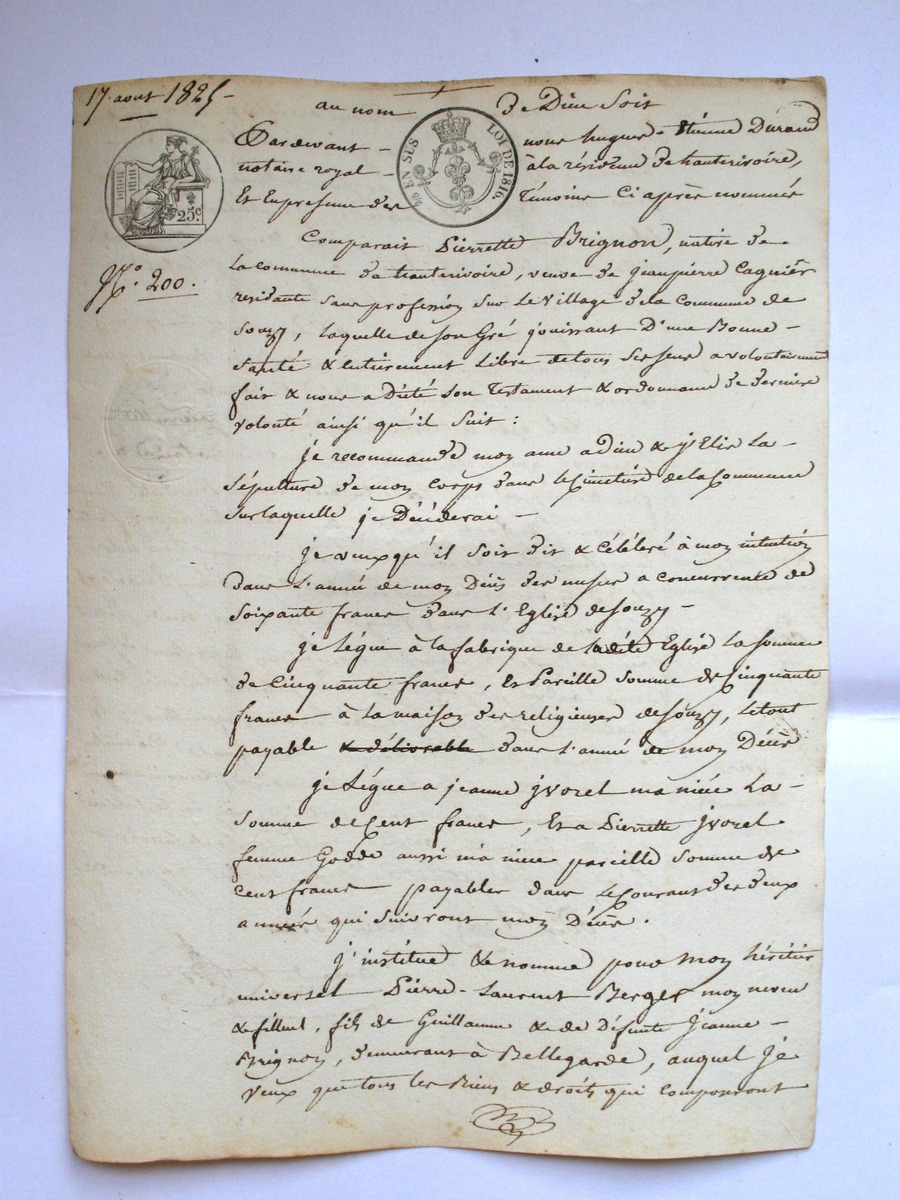 17 aout 1825
au nom de Dieu Soit
Pardevant nous hugues Etienne Durand
notaire royal à la résidence de hauterivoire,
Et En presence des Témoins Ci après nommés
40 EN SUS LOI DE 1816.
25c
No. 200.
Comparait Pierrette Brignon, native de
la commune de hauterivoire, veuve de jeanpierre Cagnier
residante sans profession sur le Village de la Commune de
Souzy, laquelle de son Gré jouissant D'une Bonne
Santé & Entierement Libre de tous ses sens a volontairement
fait & nous a Dicté son Testament & ordonnance de derniere
volonté ainsi qu'il suit :
je recommande mon ame a dieu & j'Elis la
Sépulture de mon corps dans le Cimetière de la Commune
sur laquelle je Décéderai
je veux qu'il soit dit & Célébré à mon intention
dans l'année de mon Décès des messes a concurrence de
Soixante francs dans l'Eglise de Souzy
je Légue à la fabrique de ladite Eglise la somme
de Cinquante francs, Et Pareille somme de Cinquante
francs à la maison des religieuses de Souzy, le tout
payable & délivrable dans l'année de mon Décès
je Légue a jeanne jvorel ma niéce la
somme de Cent francs, Et a Pierrette jvorel
femme Godde aussi ma niece pareille somme de
Cent francs payables dans le Courant des deux
années qui suivront mon Décès.
j'institue & nomme pour mon héritier
universel Pierre-Laurent Berger mon neveu
& filleul, fils de Guillaume & de Défunte Jeanne
Brignon, demeurant à Bellegarde, auquel je
veux que tous les Biens & droits qui composeront